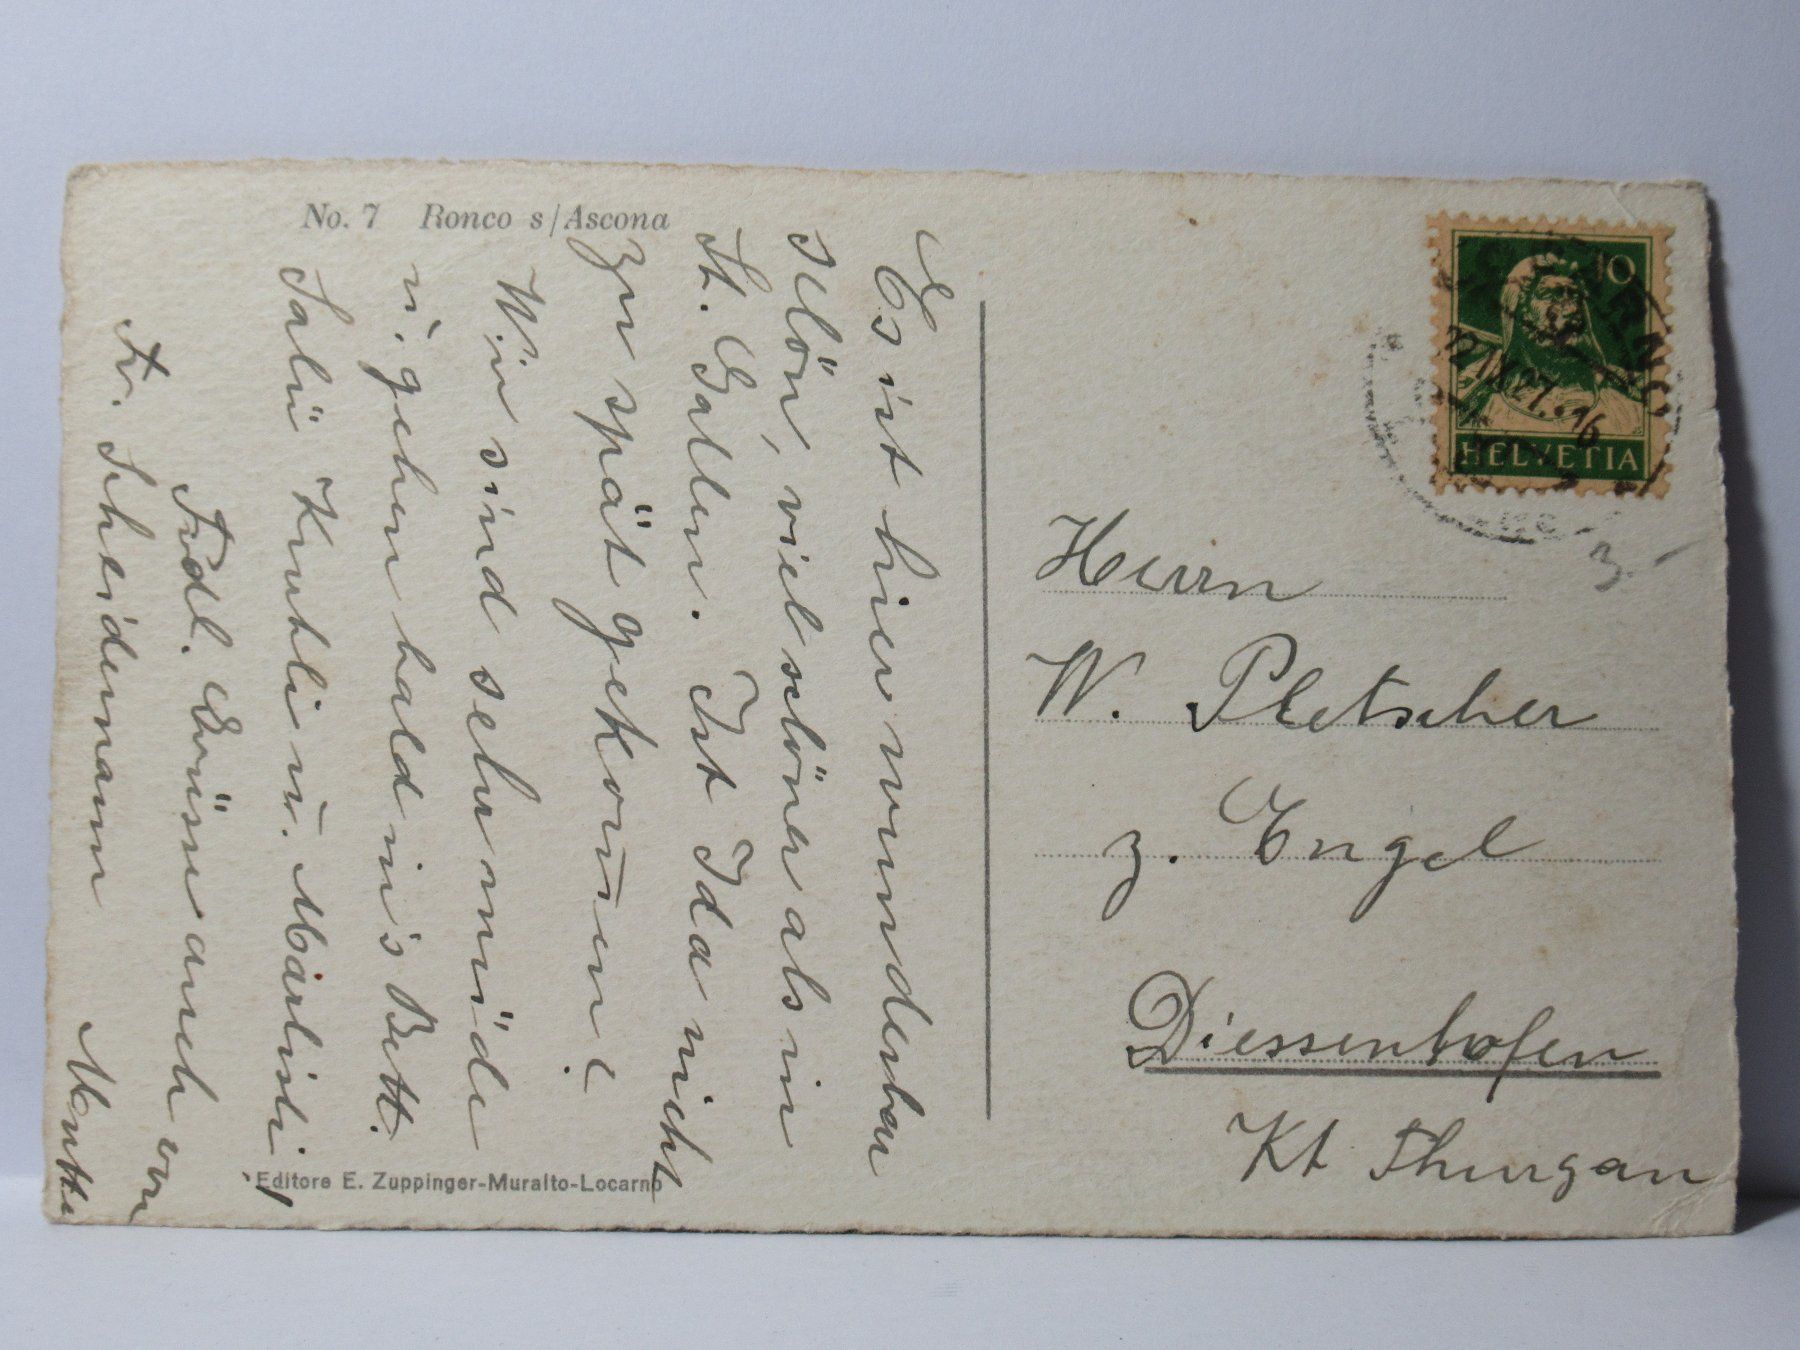 No. 7 Ronco s/Ascona
Es ist hier wunderbar
schön, viel schöner als in
St. Gallen. Ist Ida nicht
zu spät gekom̄en?
Wir sind sehr müde
u. gehen bald in's Bett.
Salü u.
Frdl. Grüsse auch von
Fr. Scheidemann
Editore E. Zuppinger-Muralto-Locarno
10
HELVETIA
Herrn
W. Pletscher
z. Engel
Diessenhofen
Kt Thurgau